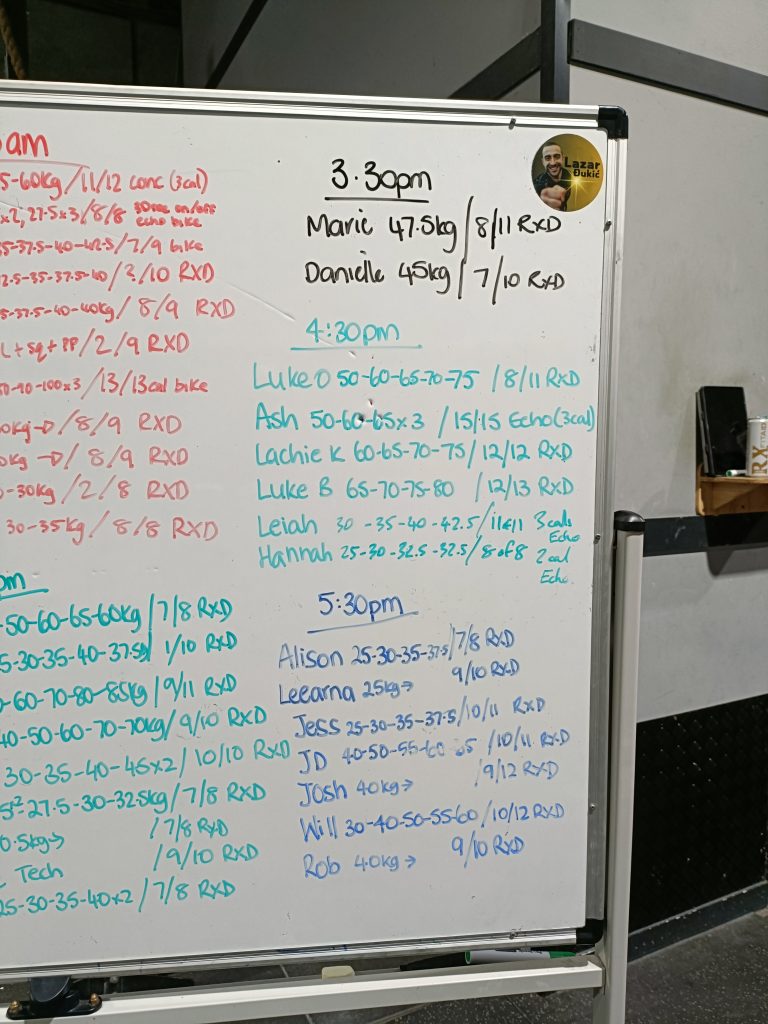 am
5-60kg/11/12 conc (3cal)
x2, 27.5x3/8/8 30sec on/off
echo bike
35-37.5-40-42.5/7/9 bike
2.5-35-37.5-40/3/10 RXD
5-37.5-40-40kg/8/9 RXD
L+SQ+PP/2/9 RXD
-90-100x3/13/13cal bike
0kg→/8/9 RXD
0kg→/8/9 RXD
-30kg/2/8 RXD
30-35kg/8/8 RXD
pm
-50-60-65-60kg/7/8 RXD
5-30-35-40-37.5/1/10 RXD
-60-70-80-85kg/9/11 RXD
40-50-60-70-70kg/9/10 RXD
30-35-40-45x2/10/10 RXD
27.5-30-32.5kg/7/8 RXD
0.5kg→/7/8 RXD
Tech /9/10 RXD
25-30-35-40x2/7/8 RXD
Lazar
Đukić
3.30pm
Marie 47.5kg/8/11 RXD
Danielle 45kg/7/10 RXD
4:30pm
Luke O 50-60-65-70-75/8/11 RXD
Ash 50-60-65x3/15/15 Echo(3cal)
Lachie K 60-65-70-75/12/12 RXD
Luke B 65-70-75-80/12/13 RXD
Leiah 30-35-40-42.5/11of11 3cals
Echo
Hannah 25-30-32.5-32.5/8of8 2cal
Echo
5:30pm
Alison 25-30-35-37.5/7/8 RXD
Leearna 25kg→ 9/10 RXD
Jess 25-30-35-37.5/10/11 RXD
JD 40-50-55-60-65/10/11 RXD
Josh 40kg→ /9/12 RXD
Will 30-40-50-55-60/10/12 RXD
Rob 40kg→ 9/10 RXD
RX